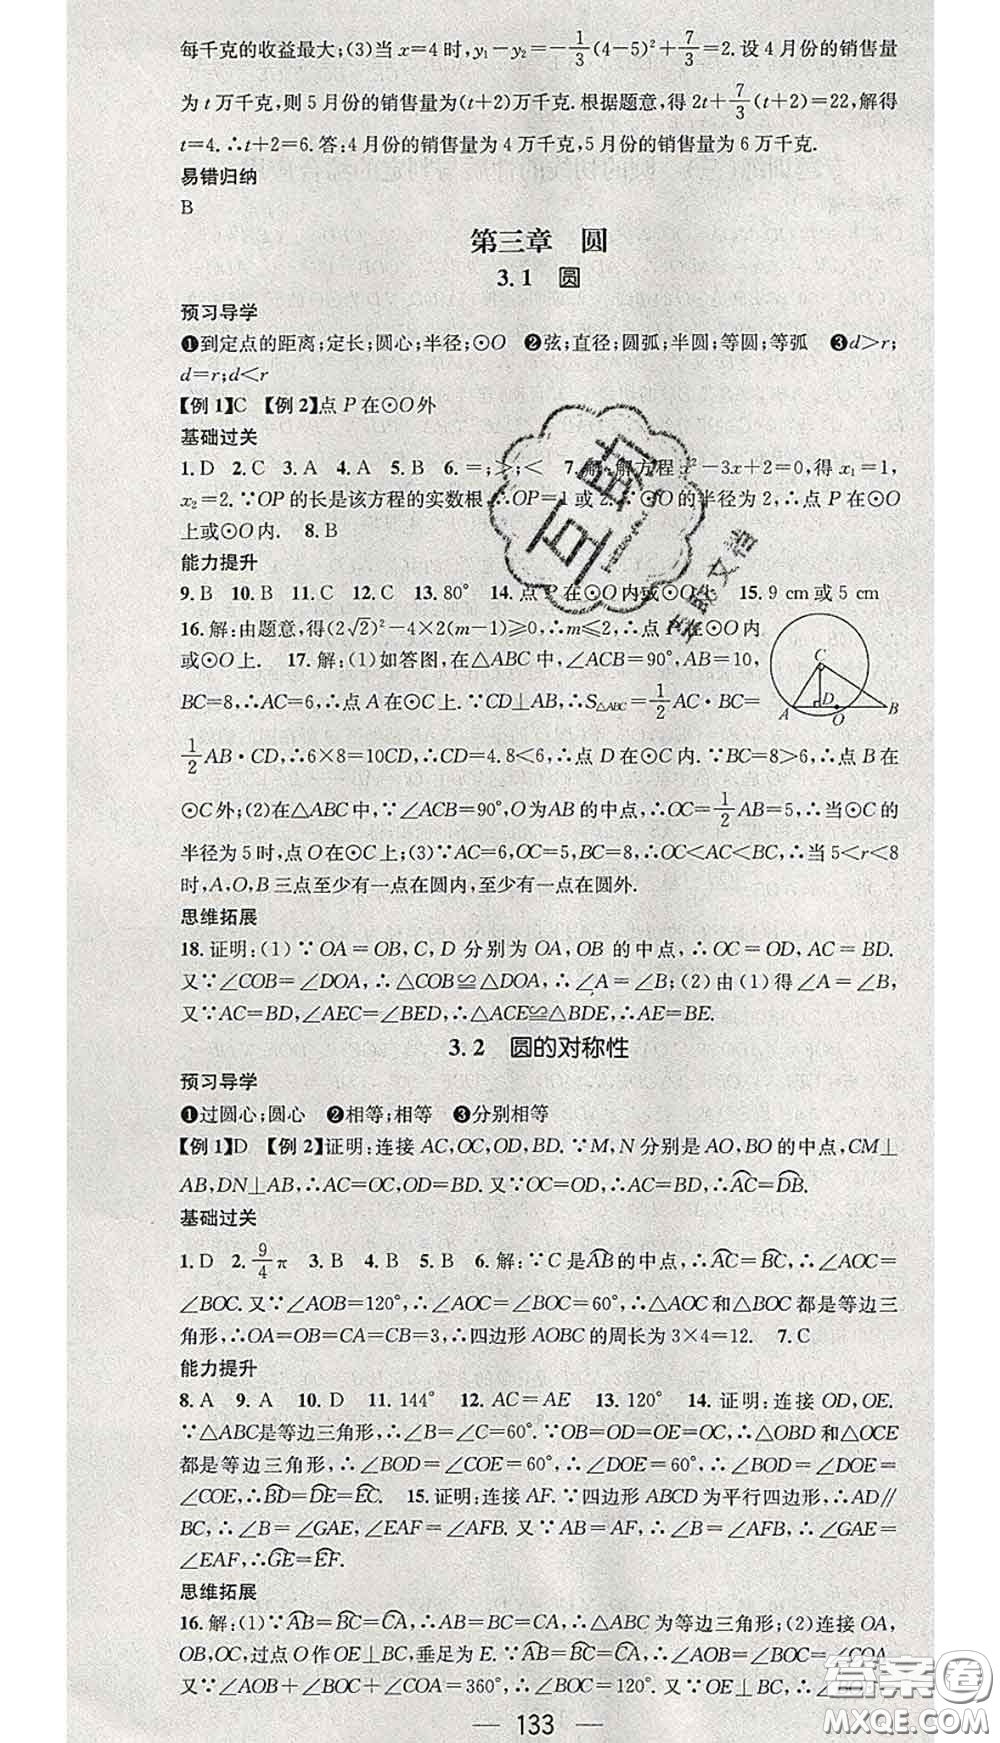 每千克的收益最大;(3)当 x=4 时,y₁-y₂=-1/3(4-5)²+7/3=2.设 4 月份的销售量
为 t 万千克,则 5 月份的销售量为(t+2)万千克.根据题意,得 2t+7/3(t+2)=22,解得
t=4.∴t+2=6.答:4 月份的销售量为 4 万千克,5 月份的销售量为 6 万千克.
易错归纳
B
第三章 圆
3.1 圆
预习导学
❶到定点的距离;定长;圆心;半径;⊙O ❷弦;直径;圆弧;半圆;等圆;等弧 ❸d>r;
d=r;d<r
【例 1】C 【例 2】点 P 在⊙O 外
基础过关
1.D 2.C 3.A 4.A 5.B 6.=;>;< 7.解:解方程 x²-3x+2=0,得 x₁=1,
x₂=2.∵OP 的长是该方程的实数根,∴OP=1 或 2.∵⊙O 的半径为 2,∴点 P 在⊙O
上或⊙O 内. 8.B
能力提升
9.B 10.B 11.C 12.C 13.80° 14.点 P 在⊙O 内或⊙O 上 15.9 cm 或 5 cm
16.解:由题意,得(2√2)²-4×2(m-1)≥0,∴m≤2,∴点 P 在⊙O 内
或⊙O 上. 17.解:(1)如答图,在△ABC 中,∠ACB=90°,AB=10,
BC=8,∴AC=6,∴点 A 在⊙C 上.∵CD⊥AB,∴S△ABC=1/2AC·BC=
C
A
D
O
B
1/2AB·CD,∴6×8=10CD,∴CD=4.8<6,∴点 D 在⊙C 内.∵BC=8>6,∴点 B 在
⊙C 外;(2)在△ABC 中,∵∠ACB=90°,O 为 AB 的中点,∴OC=1/2AB=5,∴当⊙C 的
半径为 5 时,点 O 在⊙C 上;(3)∵AC=6,OC=5,BC=8,∴OC<AC<BC,∴当 5<r<8
时,A,O,B 三点至少有一点在圆内,至少有一点在圆外.
思维拓展
18.证明:(1)∵OA=OB,C,D 分别为 OA,OB 的中点,∴OC=OD,AC=BD.
又∵∠COB=∠DOA,∴△COB≌△DOA,∴∠A=∠B;(2)由(1)得∠A=∠B,
又∵AC=BD,∠AEC=∠BED,∴△ACE≌△BDE,∴AE=BE.
3.2 圆的对称性
预习导学
❶过圆心;圆心 ❷相等;相等 ❸分别相等
【例 1】D 【例 2】证明:连接 AC,OC,OD,BD.∵M,N 分别是 AO,BO 的中点,CM⊥
AB,DN⊥AB,∴AC=OC,OD=BD.又∵OC=OD,∴AC=DB,∴A͡C=D͡B.
基础过关
1.D 2.9/4π 3.B 4.B 5.B 6.解:∵C 是A͡B的中点,∴A͡C=B͡C,∴∠AOC=
∠BOC.又∵∠AOB=120°,∴∠AOC=∠BOC=60°,∴△AOC 和△BOC 都是等边三
角形,∴OA=OB=CA=CB=3,∴四边形 AOBC 的周长为 3×4=12. 7.C
能力提升
8.A 9.A 10.D 11.144° 12.AC=AE 13.120° 14.证明:连接 OD,OE.
∵△ABC是等边三角形,∴∠B=∠C=60°.∵OB=OD=OE=OC,∴△OBD 和△OCE
都是等边三角形,∴∠BOD=∠COE=60°,∴∠DOE=60°,∴∠BOD=∠DOE=
∠COE,∴B͡D=D͡E=E͡C. 15.证明:连接 AF.∵四边形 ABCD 为平行四边形,∴AD∥
BC,∴∠B=∠GAE,∠EAF=∠AFB.又∵AB=AF,∴∠B=∠AFB,∴∠GAE=
∠EAF,∴G͡E=E͡F.
思维拓展
16.解:(1)∵A͡B=B͡C=C͡A,∴AB=BC=CA,∴△ABC 为等边三角形;(2)连接 OA,
OB,OC,过点 O 作 OE⊥BC,垂足为 E.∵A͡B=B͡C=C͡A,∴∠AOB=∠BOC=∠COA.
又∵∠AOB+∠BOC+∠COA=360°,∴∠BOC=120°.又∵OE⊥BC,∴∠BOE=
133
答案圈
MXQE.COM